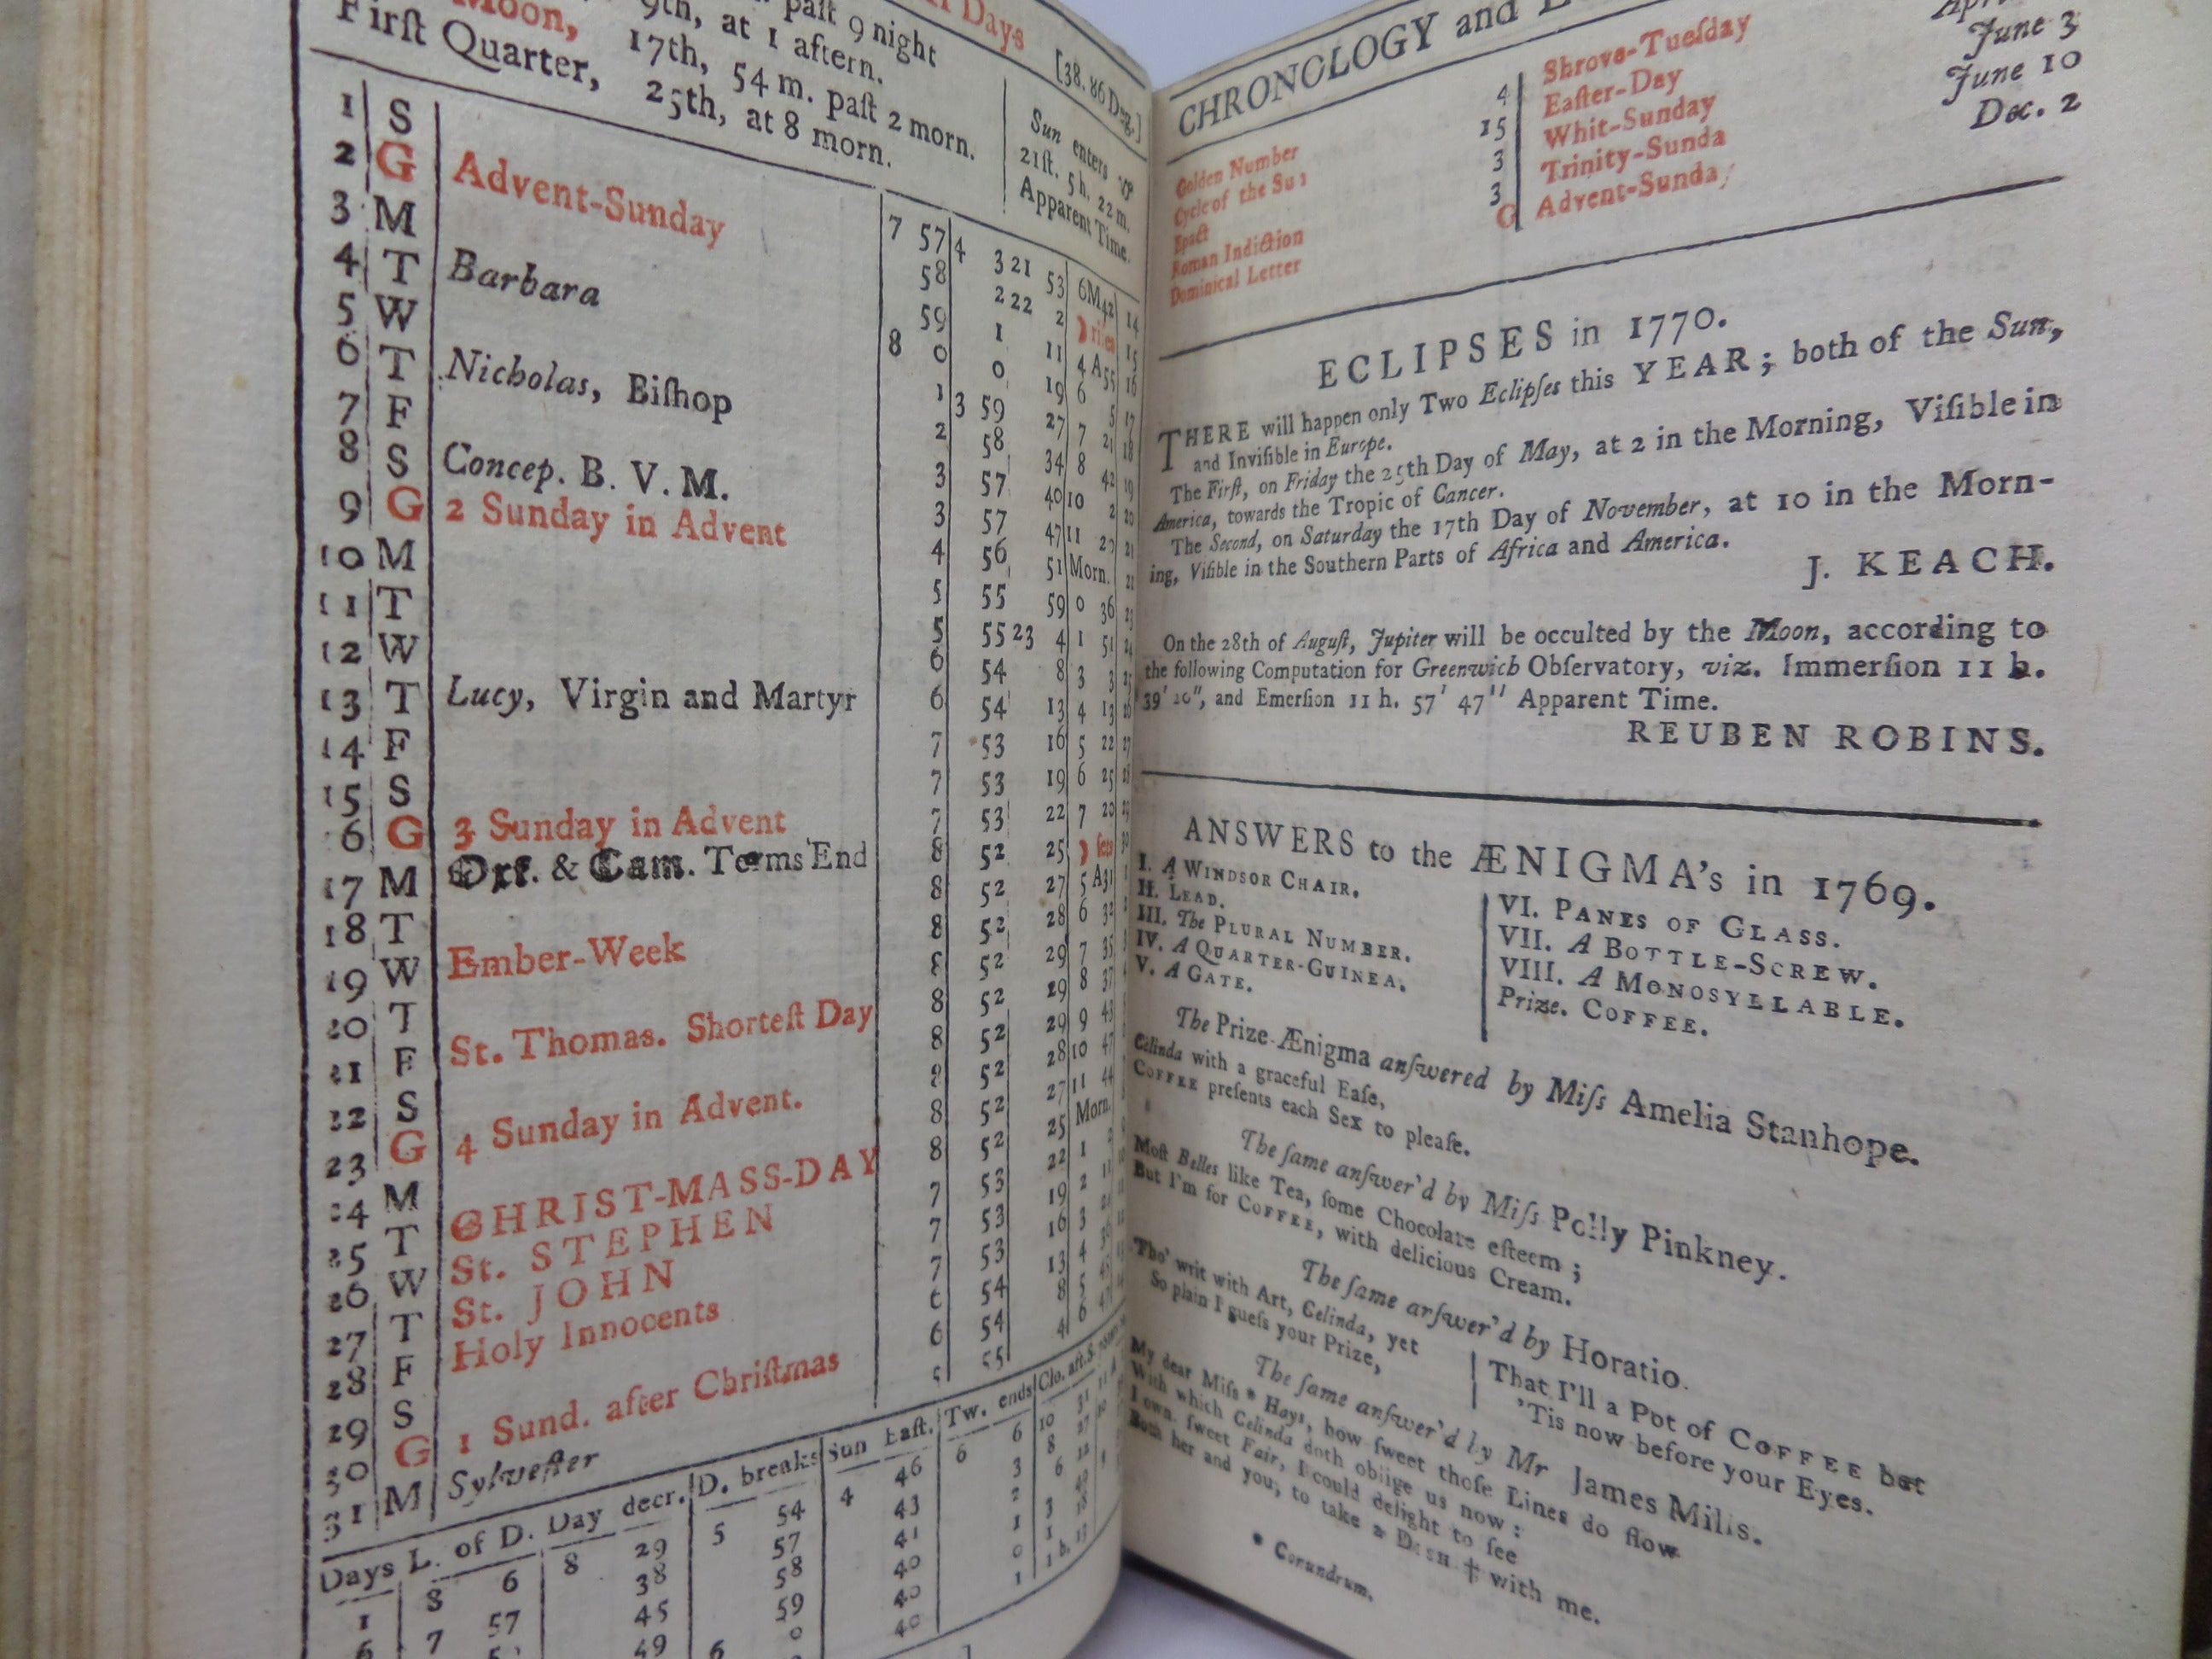 Days
past 9 night
Moon, 9th, at 1 aftern.
17th, 54 m. past 2 morn.
First Quarter, 25th, at 8 morn.
[38. 86 Deg.]
Sun enters ♑
21st. 5h. 22 m.
Apparent Time.
1 S
2 G Advent-Sunday
3 M
4 T Barbara
5 W
6 T Nicholas, Biſhop
7 F
8 S Concep. B. V. M.
9 G 2 Sunday in Advent
10 M
11 T
12 W
13 T Lucy, Virgin and Martyr
14 F
15 S
6 G 3 Sunday in Advent
17 M Oxf. & Cam. Terms End
18 T
19 W Ember-Week
20 T
21 F St. Thomas. Shorteſt Day
22 S
23 G 4 Sunday in Advent.
24 M
25 T CHRIST-MASS-DAY
26 W St. STEPHEN
27 T St. JOHN
28 F Holy Innocents
29 S
30 G 1 Sund. after Chriſtmas
31 M Sylveſter
7 57 4 3 21 53 6M42 14
58 2 22 2 ☽ riſes 15
59 1 11 4 A 55 16
8 0 0 19 6 5 17
1 3 59 27 7 21 18
2 58 34 8 42 19
3 57 40 10 2 20
3 57 47 11 20 21
4 56 51 Morn.
5 55 59 0 36 23
5 55 23 4 1 51 24
6 54 8 3 3 25
6 54 13 4 13 26
7 53 16 5 22 27
7 53 19 6 25 28
7 53 22 7 20 29
8 52 25 ☽ ſets 30
8 52 27 5 A31 1
8 52 28 6 32
8 52 29 7 35
8 52 29 8 37
8 52 29 9 43
8 52 28 10 47
8 52 27 11 44
8 52 25 Morn.
7 53 22 1
7 53 19 2
7 53 16 3
6 54 13 4
6 54 8 5
5 55 4 6
Days L. of D. Day decr. D. breaks Sun Eaſt. Tw. ends Clo. aft. S.
1 8 6 8 29 5 54 4 46 6 6 10
6 7 57 38 57 43 3 8
45 58 41 2 6
49 59 40 1 3
6 0 40 0 1
40 1
CHRONOLOGY and
Golden Number 4
Cycle of the Sun 15
Epact 3
Roman Indiction 3
Dominical Letter G
Shrove-Tueſday
Eaſter-Day
Whit-Sunday June 3
Trinity-Sunda June 10
Advent-Sunday Dec. 2
ECLIPSES in 1770.
THERE will happen only Two Eclipſes this YEAR; both of the Sun,
and Inviſible in Europe.
The Firſt, on Friday the 25th Day of May, at 2 in the Morning, Viſible in
America, towards the Tropic of Cancer.
The Second, on Saturday the 17th Day of November, at 10 in the Morn-
ing, Viſible in the Southern Parts of Africa and America.
J. KEACH.
On the 28th of Auguſt, Jupiter will be occulted by the Moon, according to
the following Computation for Greenwich Obſervatory, viz. Immerſion 11 h.
39' 20'', and Emerſion 11 h. 57' 47'' Apparent Time.
REUBEN ROBINS.
ANSWERS to the ÆNIGMA's in 1769.
I. A WINDSOR CHAIR.
II. LEAD.
III. The PLURAL NUMBER.
IV. A QUARTER-GUINEA.
V. A GATE.
VI. PANES OF GLASS.
VII. A BOTTLE-SCREW.
VIII. A MONOSYLLABLE.
Prize. COFFEE.
The Prize Ænigma anſwered by Miſs Amelia Stanhope.
Celinda with a graceful Eaſe,
COFFEE preſents each Sex to pleaſe.
The ſame anſwer'd by Miſs Polly Pinkney.
Moſt Belles like Tea, ſome Chocolate eſteem;
But I'm for COFFEE, with delicious Cream.
The ſame anſwer'd by Horatio.
Tho' writ with Art, Celinda, yet
So plain I gueſs your Prize,
That I'll a Pot of COFFEE bet
'Tis now before your Eyes.
The ſame anſwer'd by Mr James Mills.
My dear Miſs * Hays, how ſweet thoſe Lines do flow
With which Celinda doth oblige us now:
I own, ſweet Fair, I could delight to ſee
Both her and you, to take a DISH † with me.
* Conundrum.